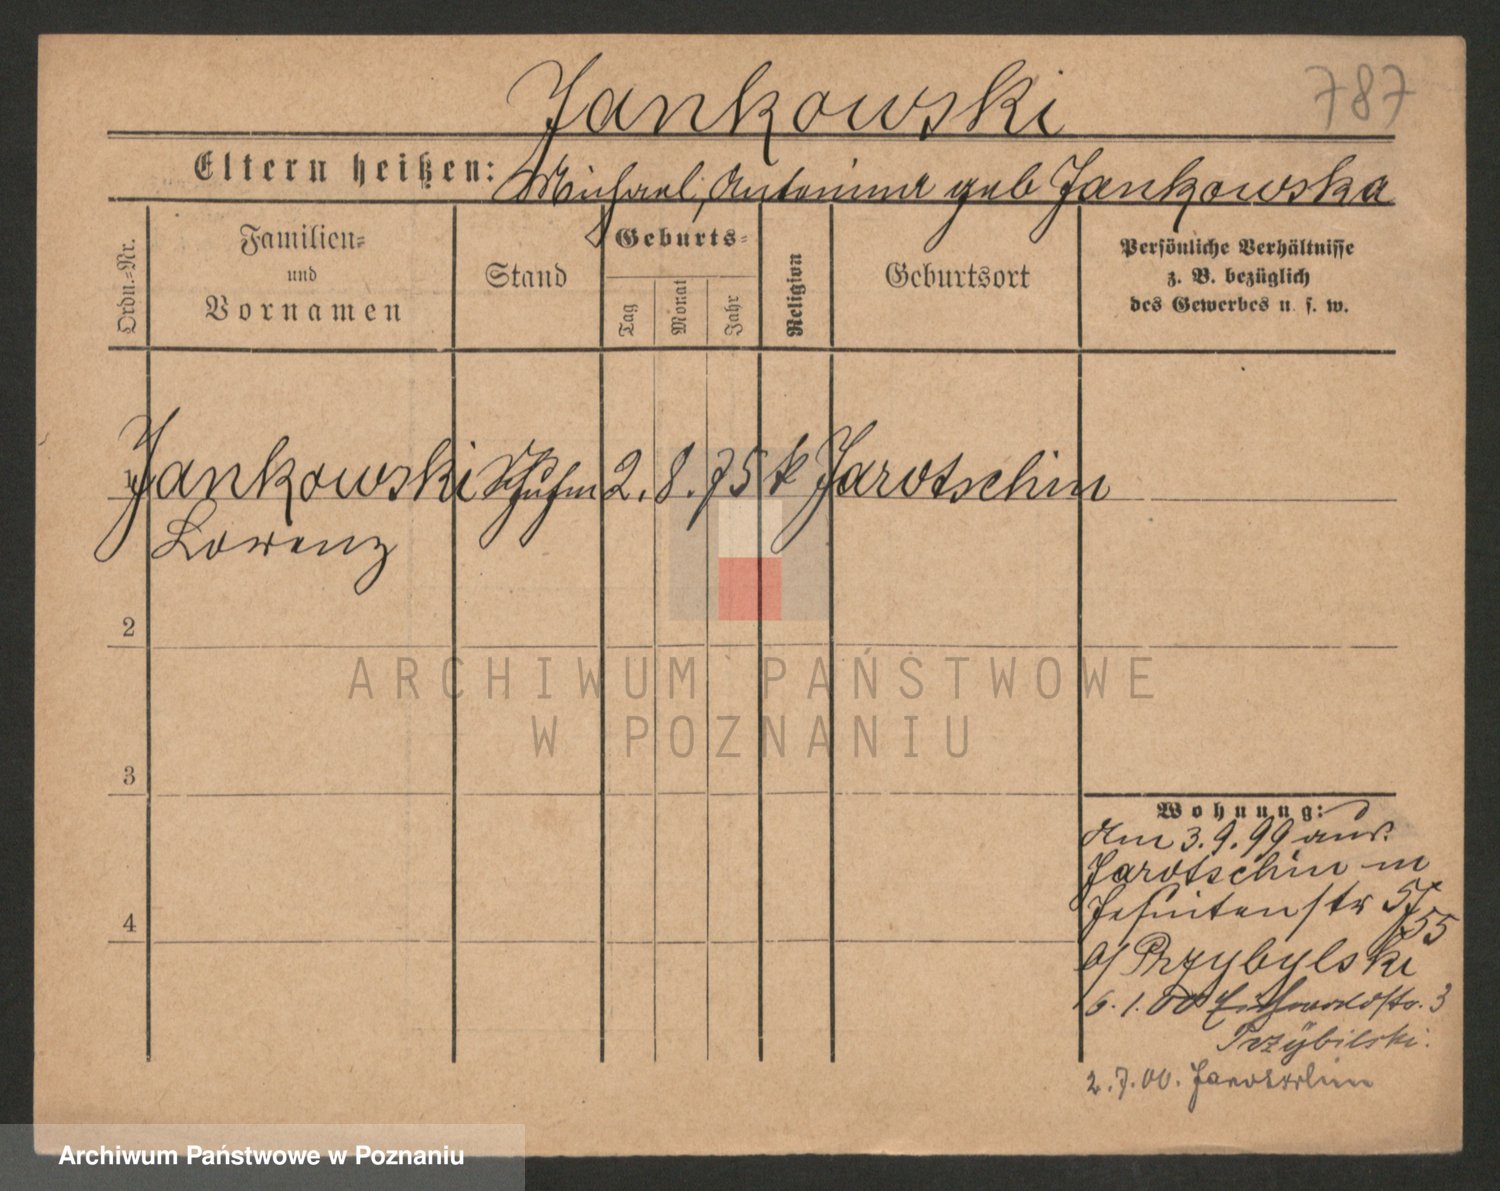 Jankowski
787
Eltern heißen: Michael, Antonina geb Jankowska
Ordn.=Nr.
Familien=
und
Vornamen
Stand
Geburts=
Tag
Monat
Jahr
Religion
Geburtsort
Persönliche Verhältnisse
z. B. bezüglich
des Gewerbes u. s. w.
Jankowski Schuhm 2. 8. 75 k Jarotschin
Lorenz
2
ARCHIWUM PAŃSTWOWE
W POZNANIU
3
Wohnung:
Am 3.9.99 aus
Jarotschin in
Jesuitenstr 5
55
b/ Przybylski
4
6.1.00 Eichwaldstr. 3
Przybilski.
2.7.00. Jarotschin
Archiwum Państwowe w Poznaniu